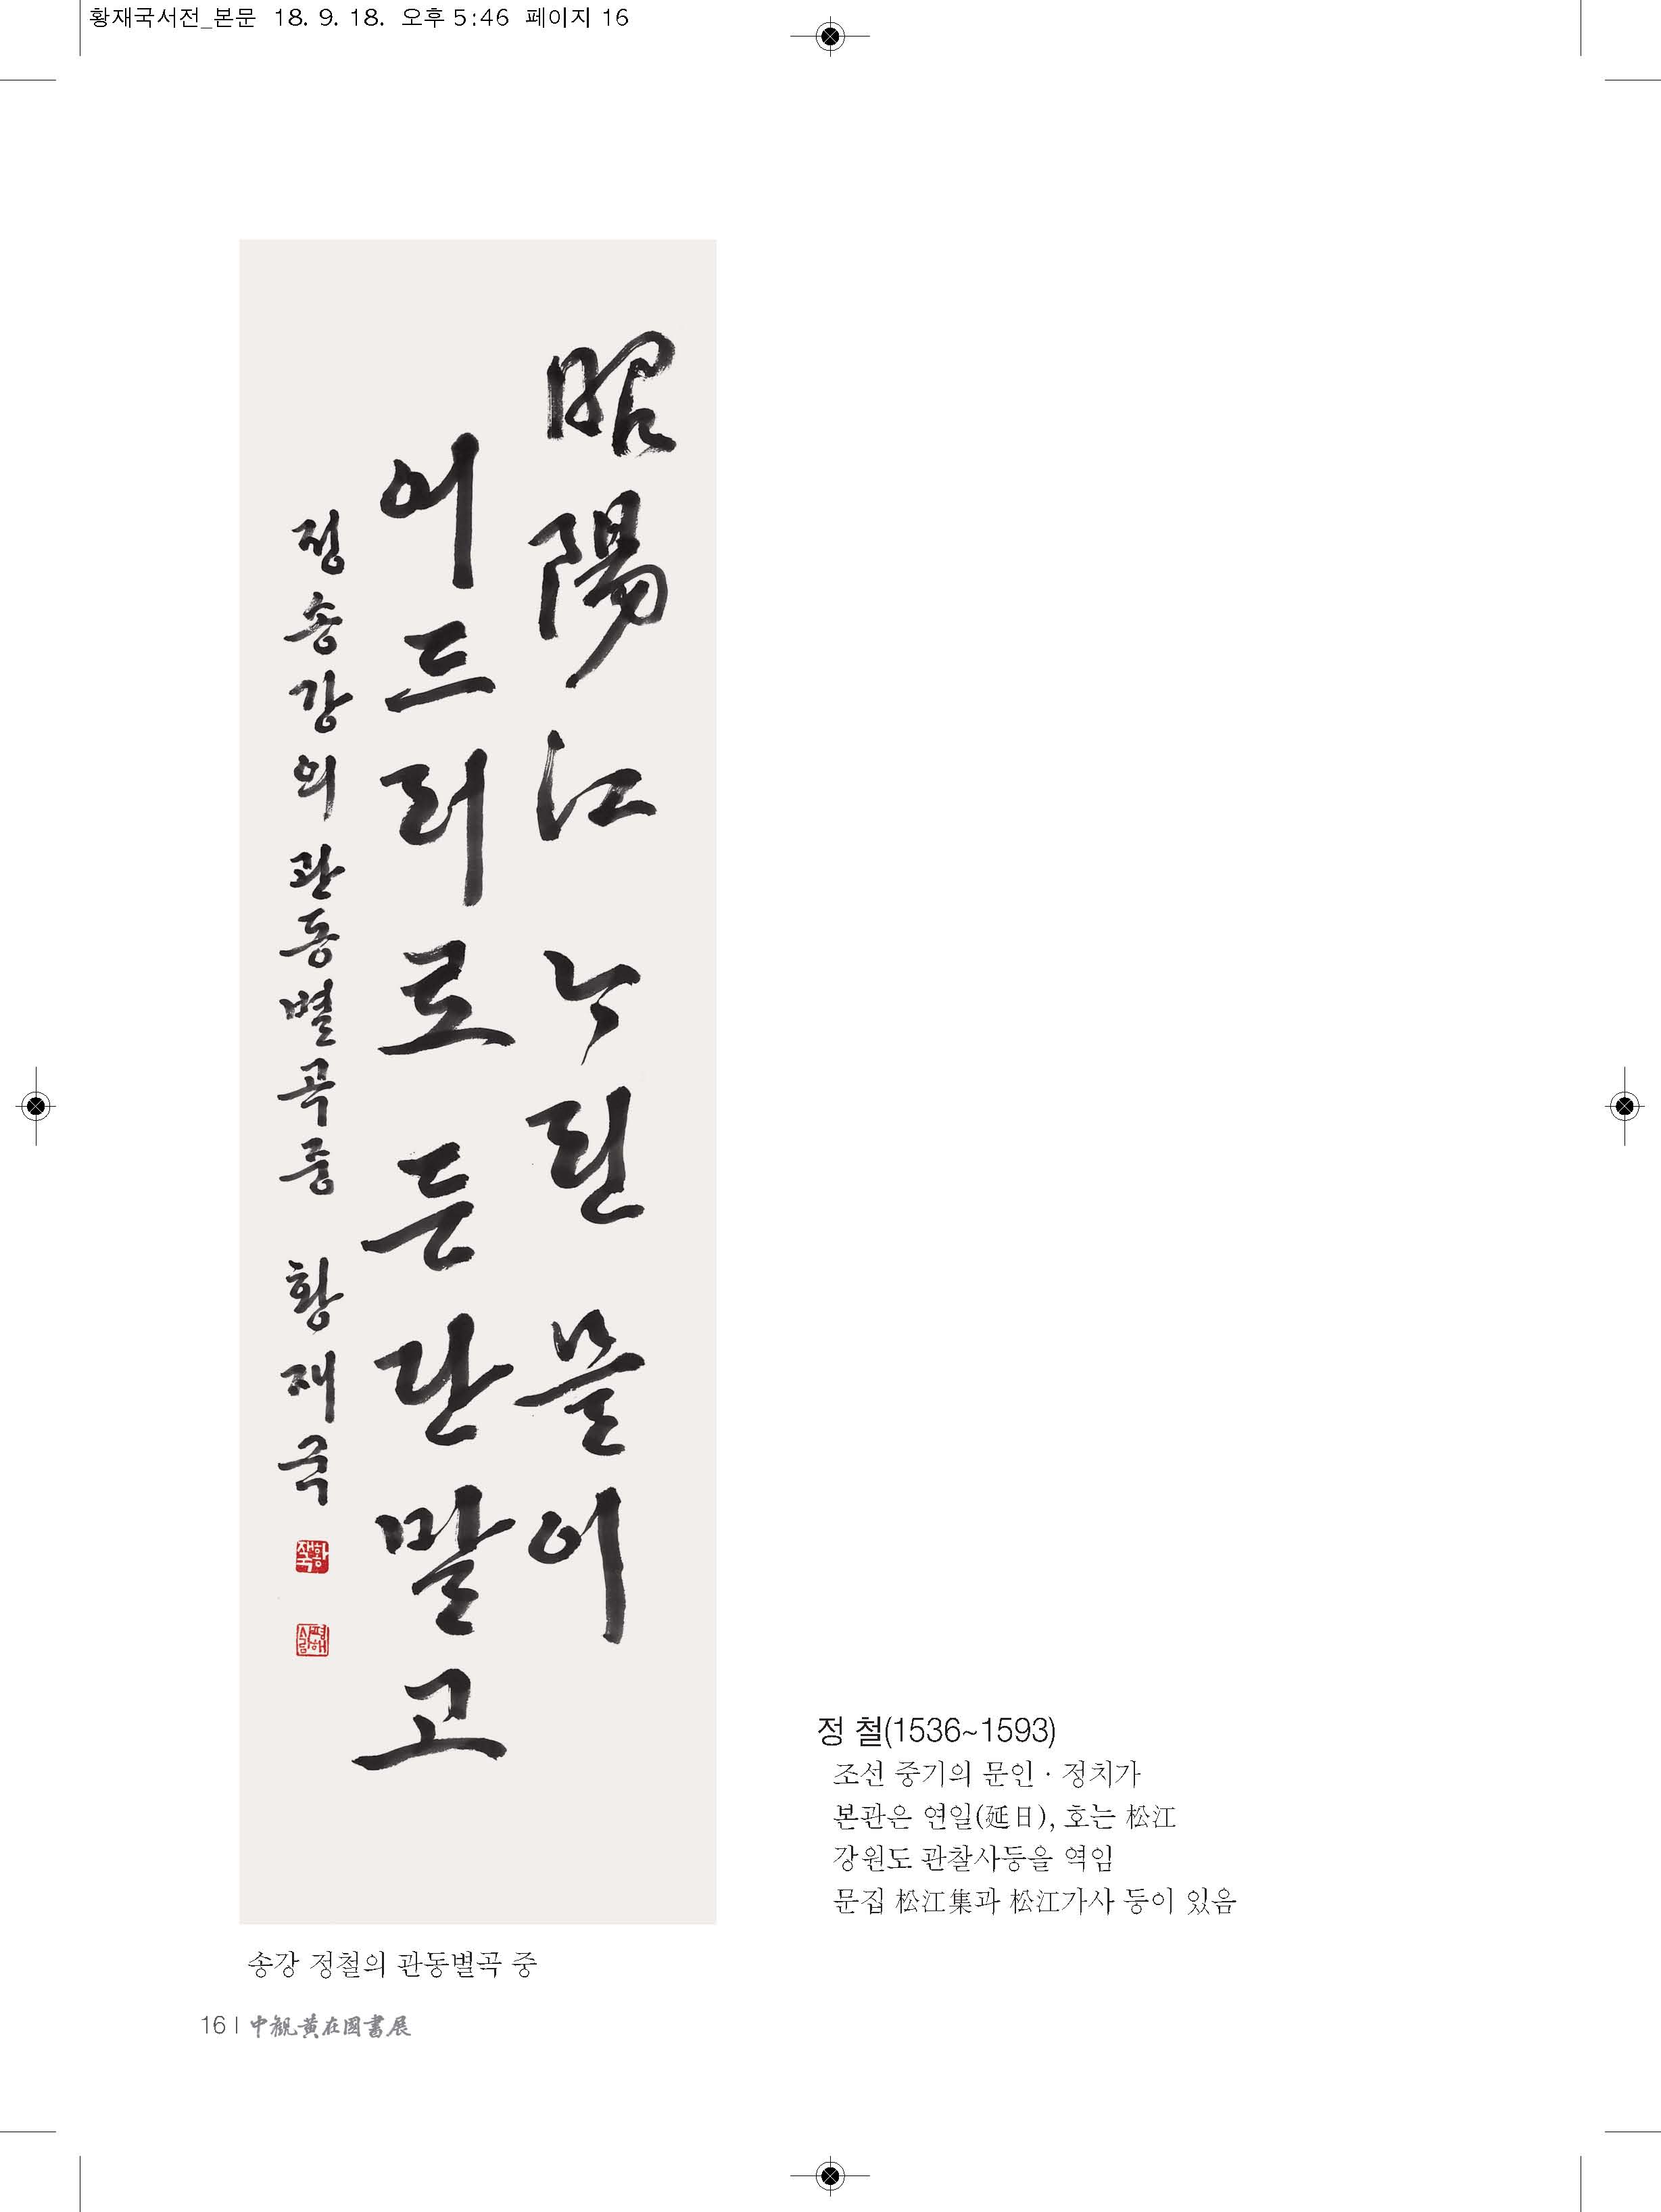 황재국서전_본문 18. 9. 18. 오후 5:46 페이지 16
昭陽江 ᄂᆞ린 믈이
어드러로 든단말고
정송강의 관동별곡중 황재국
황재국
평해사람
정 철(1536~1593)
조선 중기의 문인 · 정치가
본관은 연일(延日), 호는 松江
강원도 관찰사등을 역임
문집 松江集과 松江가사 등이 있음
송강 정철의 관동별곡 중
16 | 中観黄在国書展